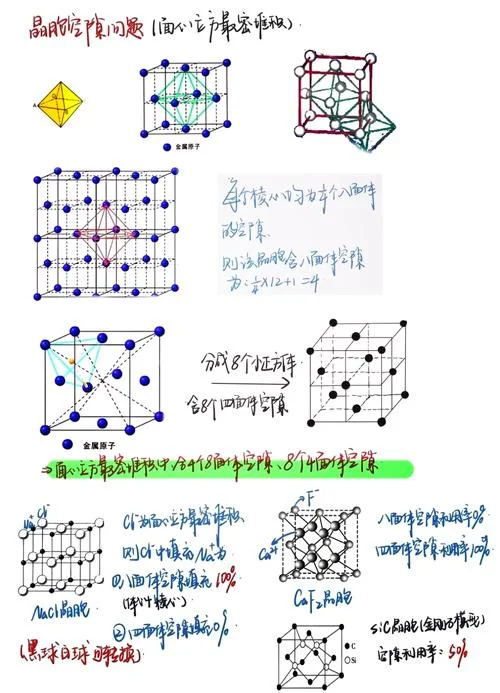 晶胞空隙问题(面心立方最密堆积).
A
金属原子
每个棱心均为本个八面体
的空隙.
则该晶胞含八面体空隙
为:¼×12+1=4
分成8个小正方体
含8个四面体空隙
金属原子
⇒面心立方最密堆积中,含4个8面体空隙、8个4面体空隙
Na⁺ Cl⁻
Cl⁻为面心立方最密堆积
则Cl⁻中填充Na⁺为
①八面体空隙填充100%
(体心+棱心)
②四面体空隙填充0%
NaCl晶胞
(黑球白球可轮换)
F⁻
Ca²⁺
CaF₂晶胞
八面体空隙利用率0%
四面体空隙利用率100%
C
Si
SiC晶胞(金刚石模型)
空隙利用率:50%